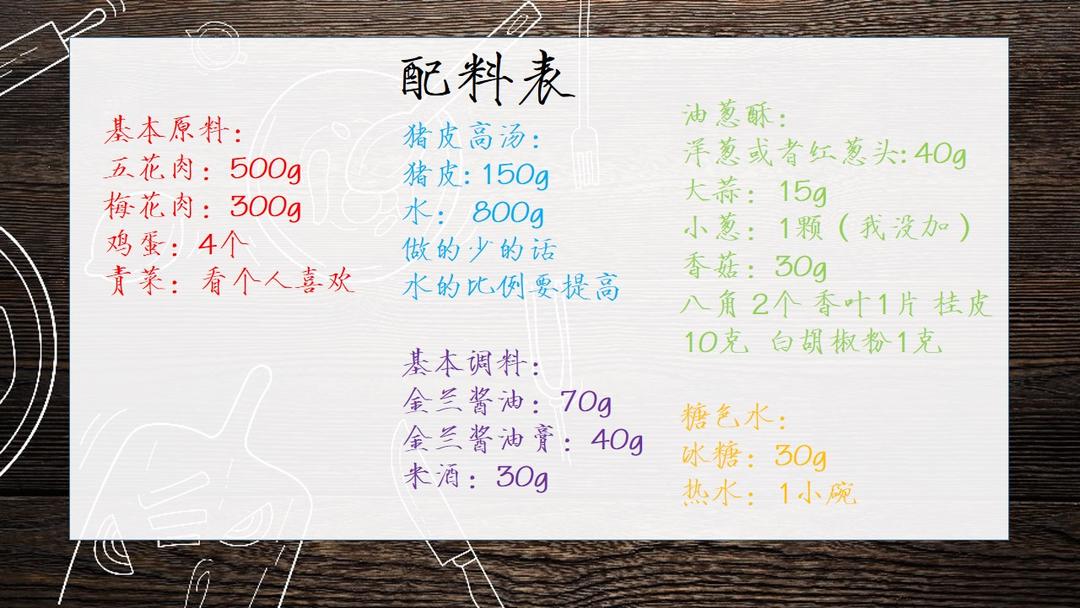 配料表
基本原料：
五花肉：500g
梅花肉：300g
鸡蛋：4个
青菜：看个人喜欢
猪皮高汤：
猪皮：150g
水： 800g
做的少的话
水的比例要提高
基本调料：
金兰酱油：70g
金兰酱油膏：40g
米酒：30g
油葱酥：
洋葱或者红葱头：40g
大蒜： 15g
小葱：1颗（我没加）
香菇：30g
八角 2个 香叶1片 桂皮
10克 白胡椒粉1克
糖色水：
冰糖：30g
热水： 1小碗